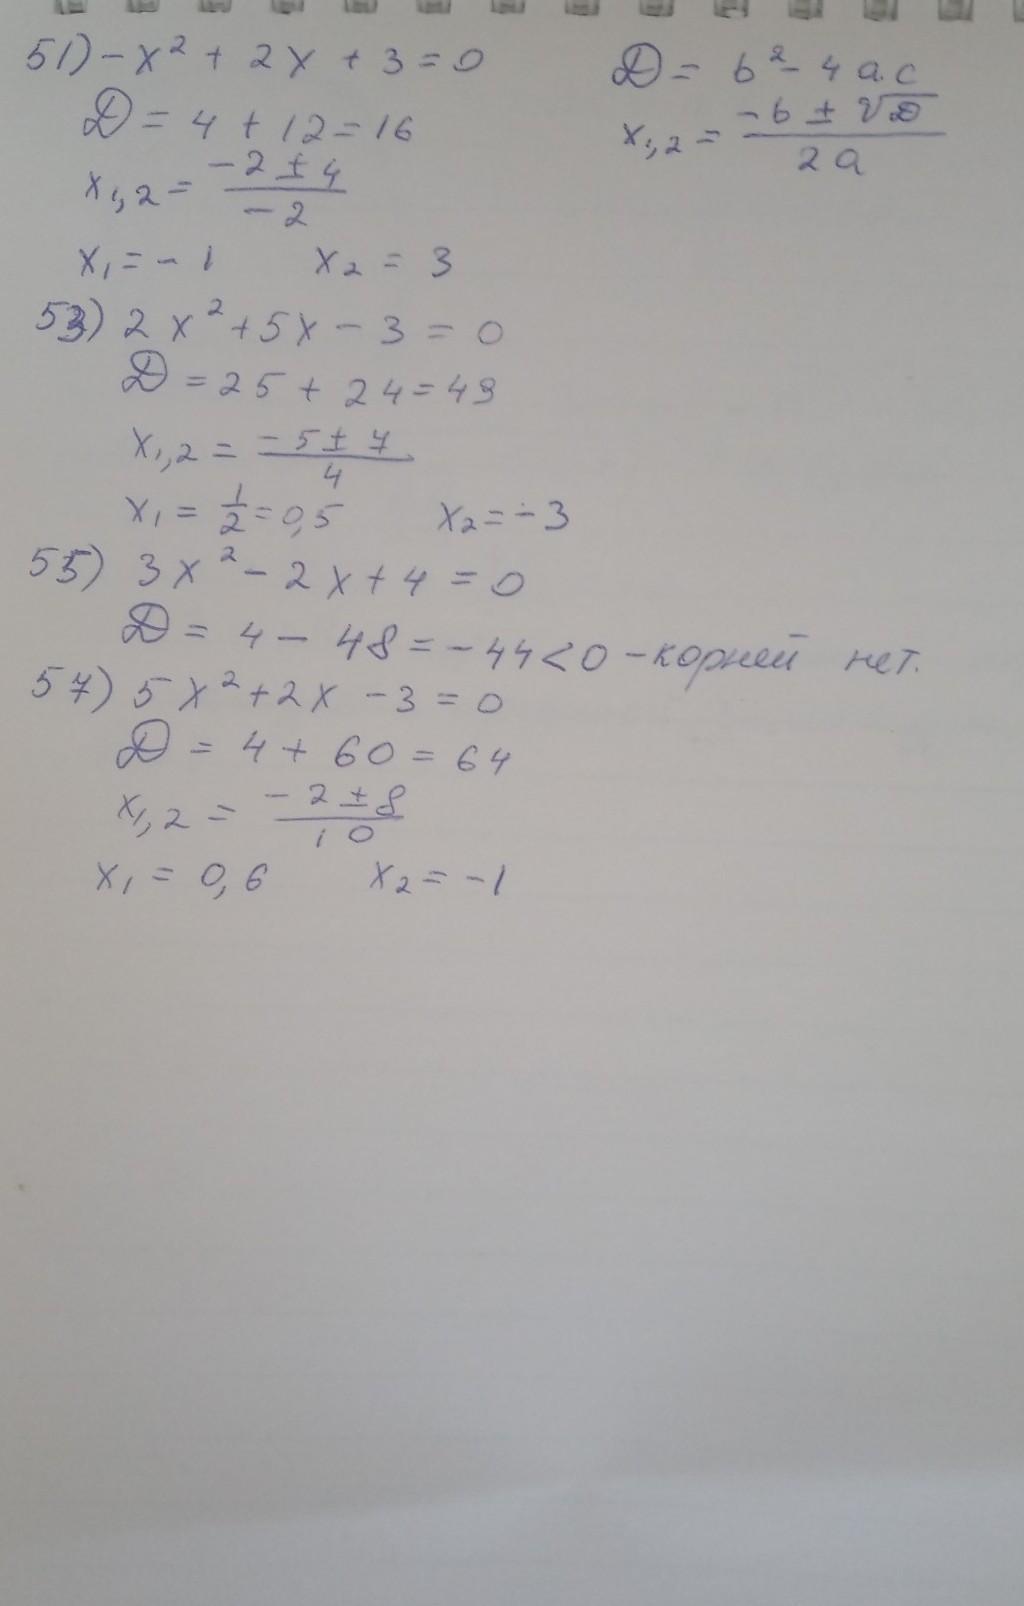 51) -x² + 2x + 3 = 0
D = b² - 4a.c
D = 4 + 12 = 16
x₁,₂ = (-b ± √D) / 2a
x₁,₂ = (-2 ± 4) / -2
x₁ = -1   x₂ = 3
53) 2x² + 5x - 3 = 0
D = 25 + 24 = 49
x₁,₂ = (-5 ± 7) / 4
x₁ = 1/2 = 0,5   x₂ = -3
55) 3x² - 2x + 4 = 0
D = 4 - 48 = -44 < 0 - корней нет.
57) 5x² + 2x - 3 = 0
D = 4 + 60 = 64
x₁,₂ = (-2 ± 8) / 10
x₁ = 0,6   x₂ = -1